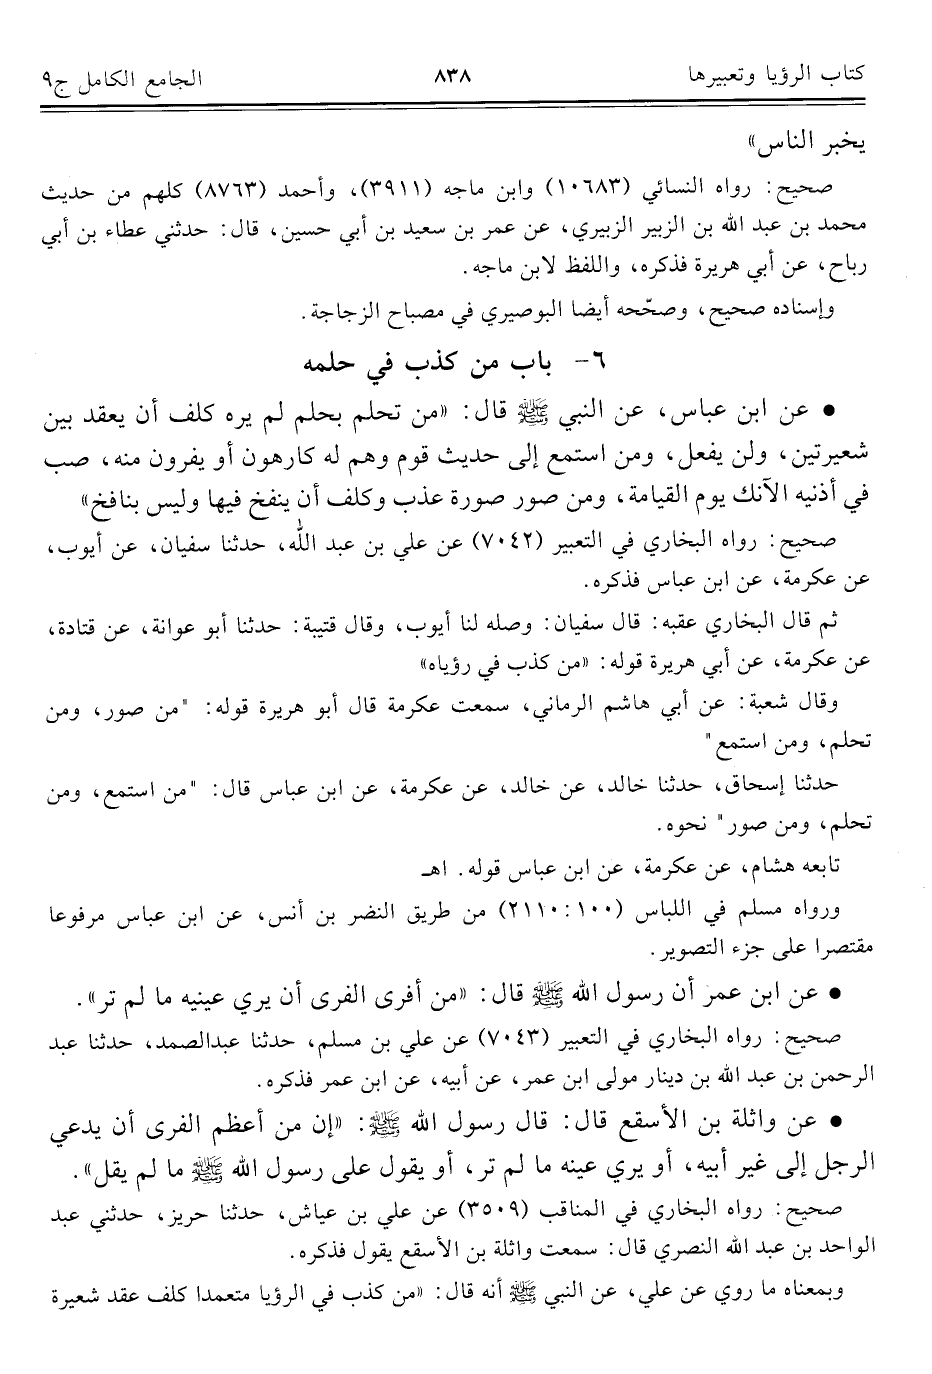 كتاب الرؤيا وتعبيرها ٨٣٨ الجامع الكامل ج٩
يخبر الناس»
صحيح: رواه النسائي (١٠٦٨٣) وابن ماجه (٣٩١١)، وأحمد (٨٧٦٣) كلهم من حديث
محمد بن عبد الله بن الزبير الزبيري، عن عمر بن سعيد بن أبي حسين، قال: حدثني عطاء بن أبي
رباح، عن أبي هريرة فذكره، واللفظ لابن ماجه.
وإسناده صحيح، وصحّحه أيضا البوصيري في مصباح الزجاجة.
٦- باب من كذب في حلمه
• عن ابن عباس، عن النبي ﷺ قال: «من تحلم بحلم لم يره كلف أن يعقد بين
شعيرتين، ولن يفعل، ومن استمع إلى حديث قوم وهم له كارهون أو يفرون منه، صب
في أذنيه الآنك يوم القيامة، ومن صور صورة عذب وكلف أن ينفخ فيها وليس بنافخ»
صحيح: رواه البخاري في التعبير (٧٠٤٢) عن علي بن عبد الله، حدثنا سفيان، عن أيوب،
عن عكرمة، عن ابن عباس فذكره.
ثم قال البخاري عقبه: قال سفيان: وصله لنا أيوب، وقال قتيبة: حدثنا أبو عوانة، عن قتادة،
عن عكرمة، عن أبي هريرة قوله: «من كذب في رؤياه»
وقال شعبة: عن أبي هاشم الرماني، سمعت عكرمة قال أبو هريرة قوله: "من صور، ومن
تحلم، ومن استمع"
حدثنا إسحاق، حدثنا خالد، عن خالد، عن عكرمة، عن ابن عباس قال: "من استمع، ومن
تحلم، ومن صور" نحوه.
تابعه هشام، عن عكرمة، عن ابن عباس قوله. اهـ
ورواه مسلم في اللباس (١٠٠:٢١١٠) من طريق النضر بن أنس، عن ابن عباس مرفوعا
مقتصرا على جزء التصوير.
• عن ابن عمر أن رسول الله ﷺ قال: «من أفرى الفرى أن يري عينيه ما لم تر».
صحيح: رواه البخاري في التعبير (٧٠٤٣) عن علي بن مسلم، حدثنا عبدالصمد، حدثنا عبد
الرحمن بن عبد الله بن دينار مولى ابن عمر، عن أبيه، عن ابن عمر فذكره.
• عن واثلة بن الأسقع قال: قال رسول الله ﷺ: «إن من أعظم الفرى أن يدعي
الرجل إلى غير أبيه، أو يري عينه ما لم تر، أو يقول على رسول الله ﷺ ما لم يقل».
صحيح: رواه البخاري في المناقب (٣٥٠٩) عن علي بن عياش، حدثنا حريز، حدثني عبد
الواحد بن عبد الله النصري قال: سمعت واثلة بن الأسقع يقول فذكره.
وبمعناه ما روي عن علي، عن النبي ﷺ أنه قال: «من كذب في الرؤيا متعمدا كلف عقد شعيرة